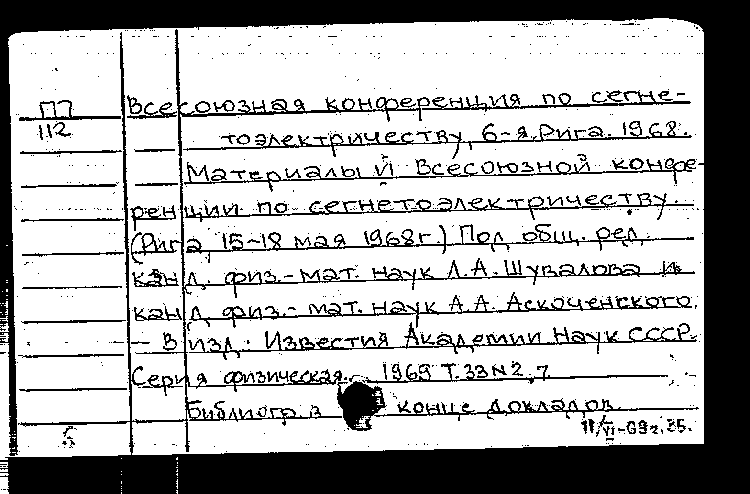 ПП Всесоюзная конференция по сегне-
112 тоэлектричеству, 6-я. Рига. 1968.
Материалы й Всесоюзной конфе-
ренции по сегнетоэлектричеству.
(Рига, 15-18 мая 1968г.) Под общ. ред.
канд. физ.-мат. наук Л.А. Шувалова и
канд. физ.-мат. наук А.А. Аскоченского.
- В изд.: Известия Академии Наук СССР.
Серия физическая. 1969 Т.33 N2, 7
Библиогр. в конце докладов.
Б 11/VI-69г. 35.